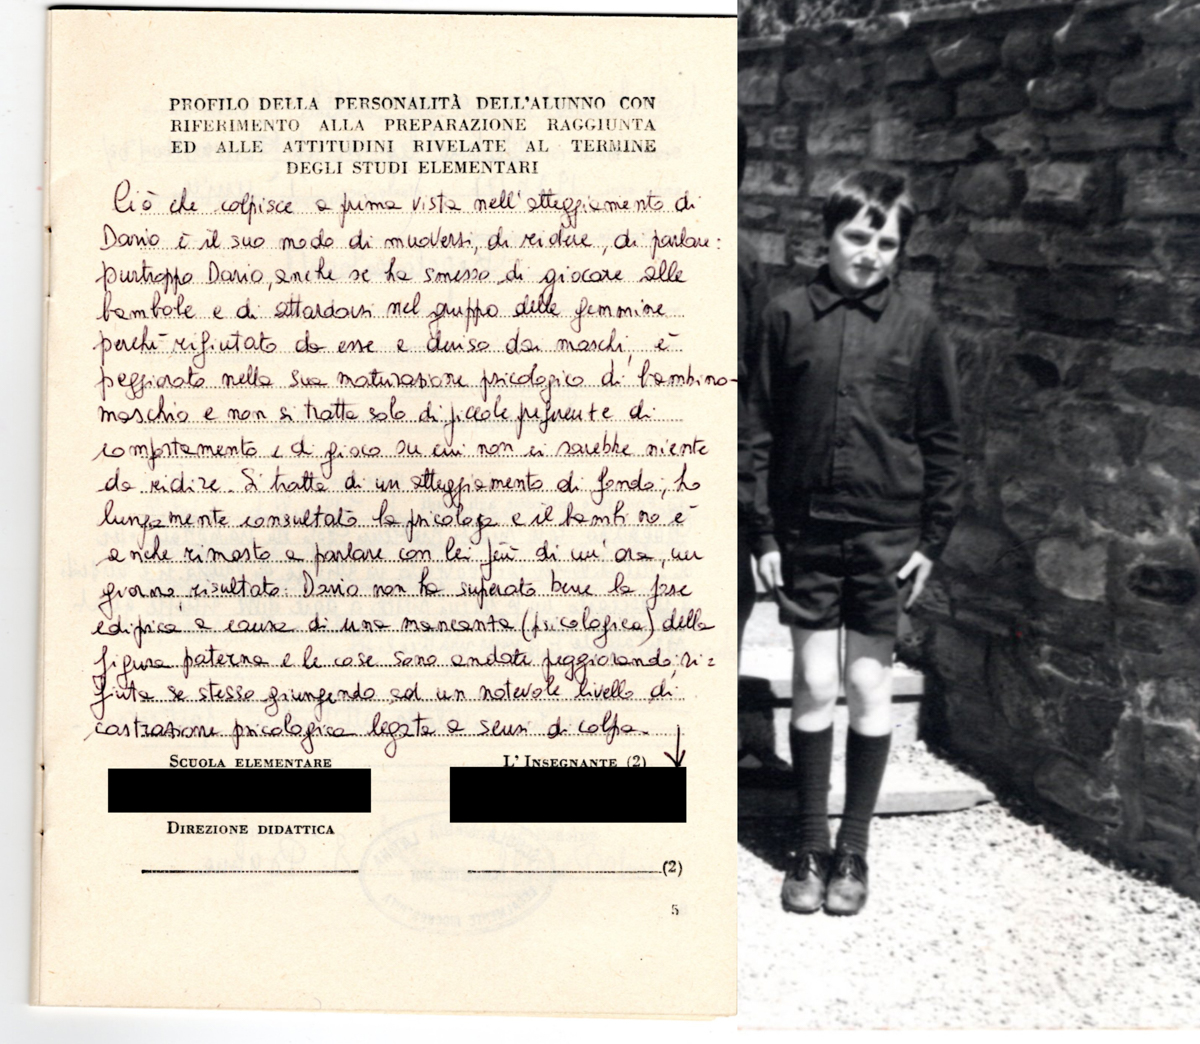 PROFILO DELLA PERSONALITÀ DELL'ALUNNO CON
RIFERIMENTO ALLA PREPARAZIONE RAGGIUNTA
ED ALLE ATTITUDINI RIVELATE AL TERMINE
DEGLI STUDI ELEMENTARI
Ciò che colpisce a prima vista nell'atteggiamento di
Dario è il suo modo di muoversi, di ridere, di parlare:
purtroppo Dario, anche se ha smesso di giocare alle
bambole e di attardarsi nel gruppo delle femmine
perché rifiutato da esse e deriso dai maschi, è
peggiorato nella sua maturazione psicologica di bambino-
maschio e non si tratta solo di piccole preferenze di
comportamento e di gioco su cui non ci sarebbe niente
da ridire. Si tratta di un atteggiamento di fondo; ho
lungamente consultato la psicologa e il bambino è
anche rimasto a parlare con lei più di un'ora, un
giorno risultato: Dario non ha superato bene la fase
edipica a causa di una mancanza (psicologica) della
figura paterna e le cose sono andate peggiorando; ri=
fiuta se stesso giungendo ad un notevole livello di
castrazione psicologica legata a sensi di colpa.
SCUOLA ELEMENTARE
L'INSEGNANTE (2)
DIREZIONE DIDATTICA
(2)
5